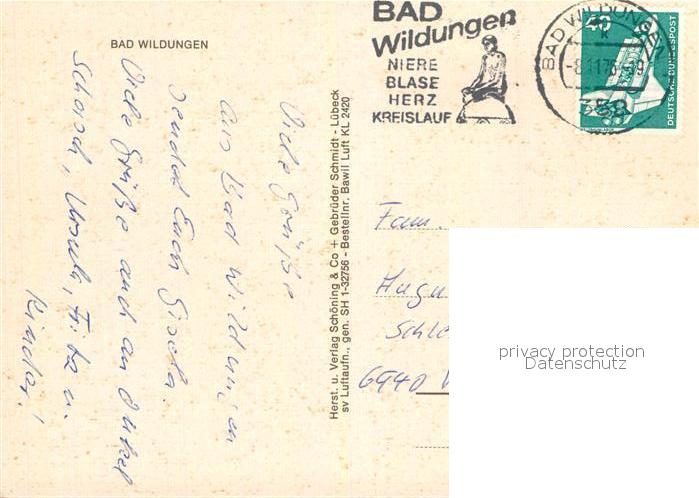 BAD WILDUNGEN
Viele Grüße
aus Bad Wildungen
sendet Euch Gisela.
Viele Grüße auch an Onkel
Schorsch, Ursula, Fritz u.
Kinder!
Herst. u. Verlag Schöning & Co + Gebrüder Schmidt - Lübeck
sv Luftaufn., gen. SH 1-32756 - Bestellnr. Bawil Luft KL 2420
BAD
Wildungen
NIERE
BLASE
HERZ
KREISLAUF
BAD WILDUNGEN
40
DEUTSCHE BUNDESPOST
Fam.
6940
privacy protection
Datenschutz